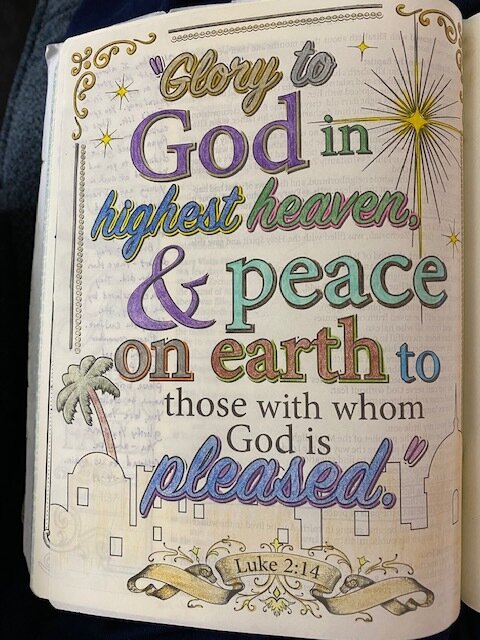 "Glory to
God in
highest heaven,
& peace
on earth to
those with whom
God is
pleased."
Luke 2:14